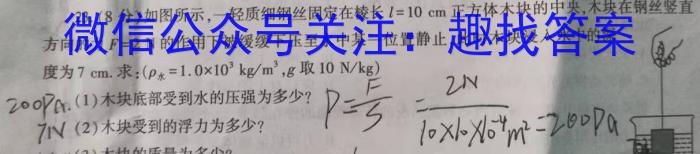 23.(8分)如图所示,一轻质细钢丝固定在棱长l=10 cm正方体木块的中央,木块在钢丝竖直
微信公众号关注：趣找答案
度为7 cm.求:(ρ水=1.0×10³ kg/m³,g取10 N/kg)
200Pa.(1)木块底部受到水的压强为多少?
P=F/S =2N/10×10×10⁻⁴m²=200Pa
7N (2)木块受到的浮力为多少?
(3)木块的质量为多少?